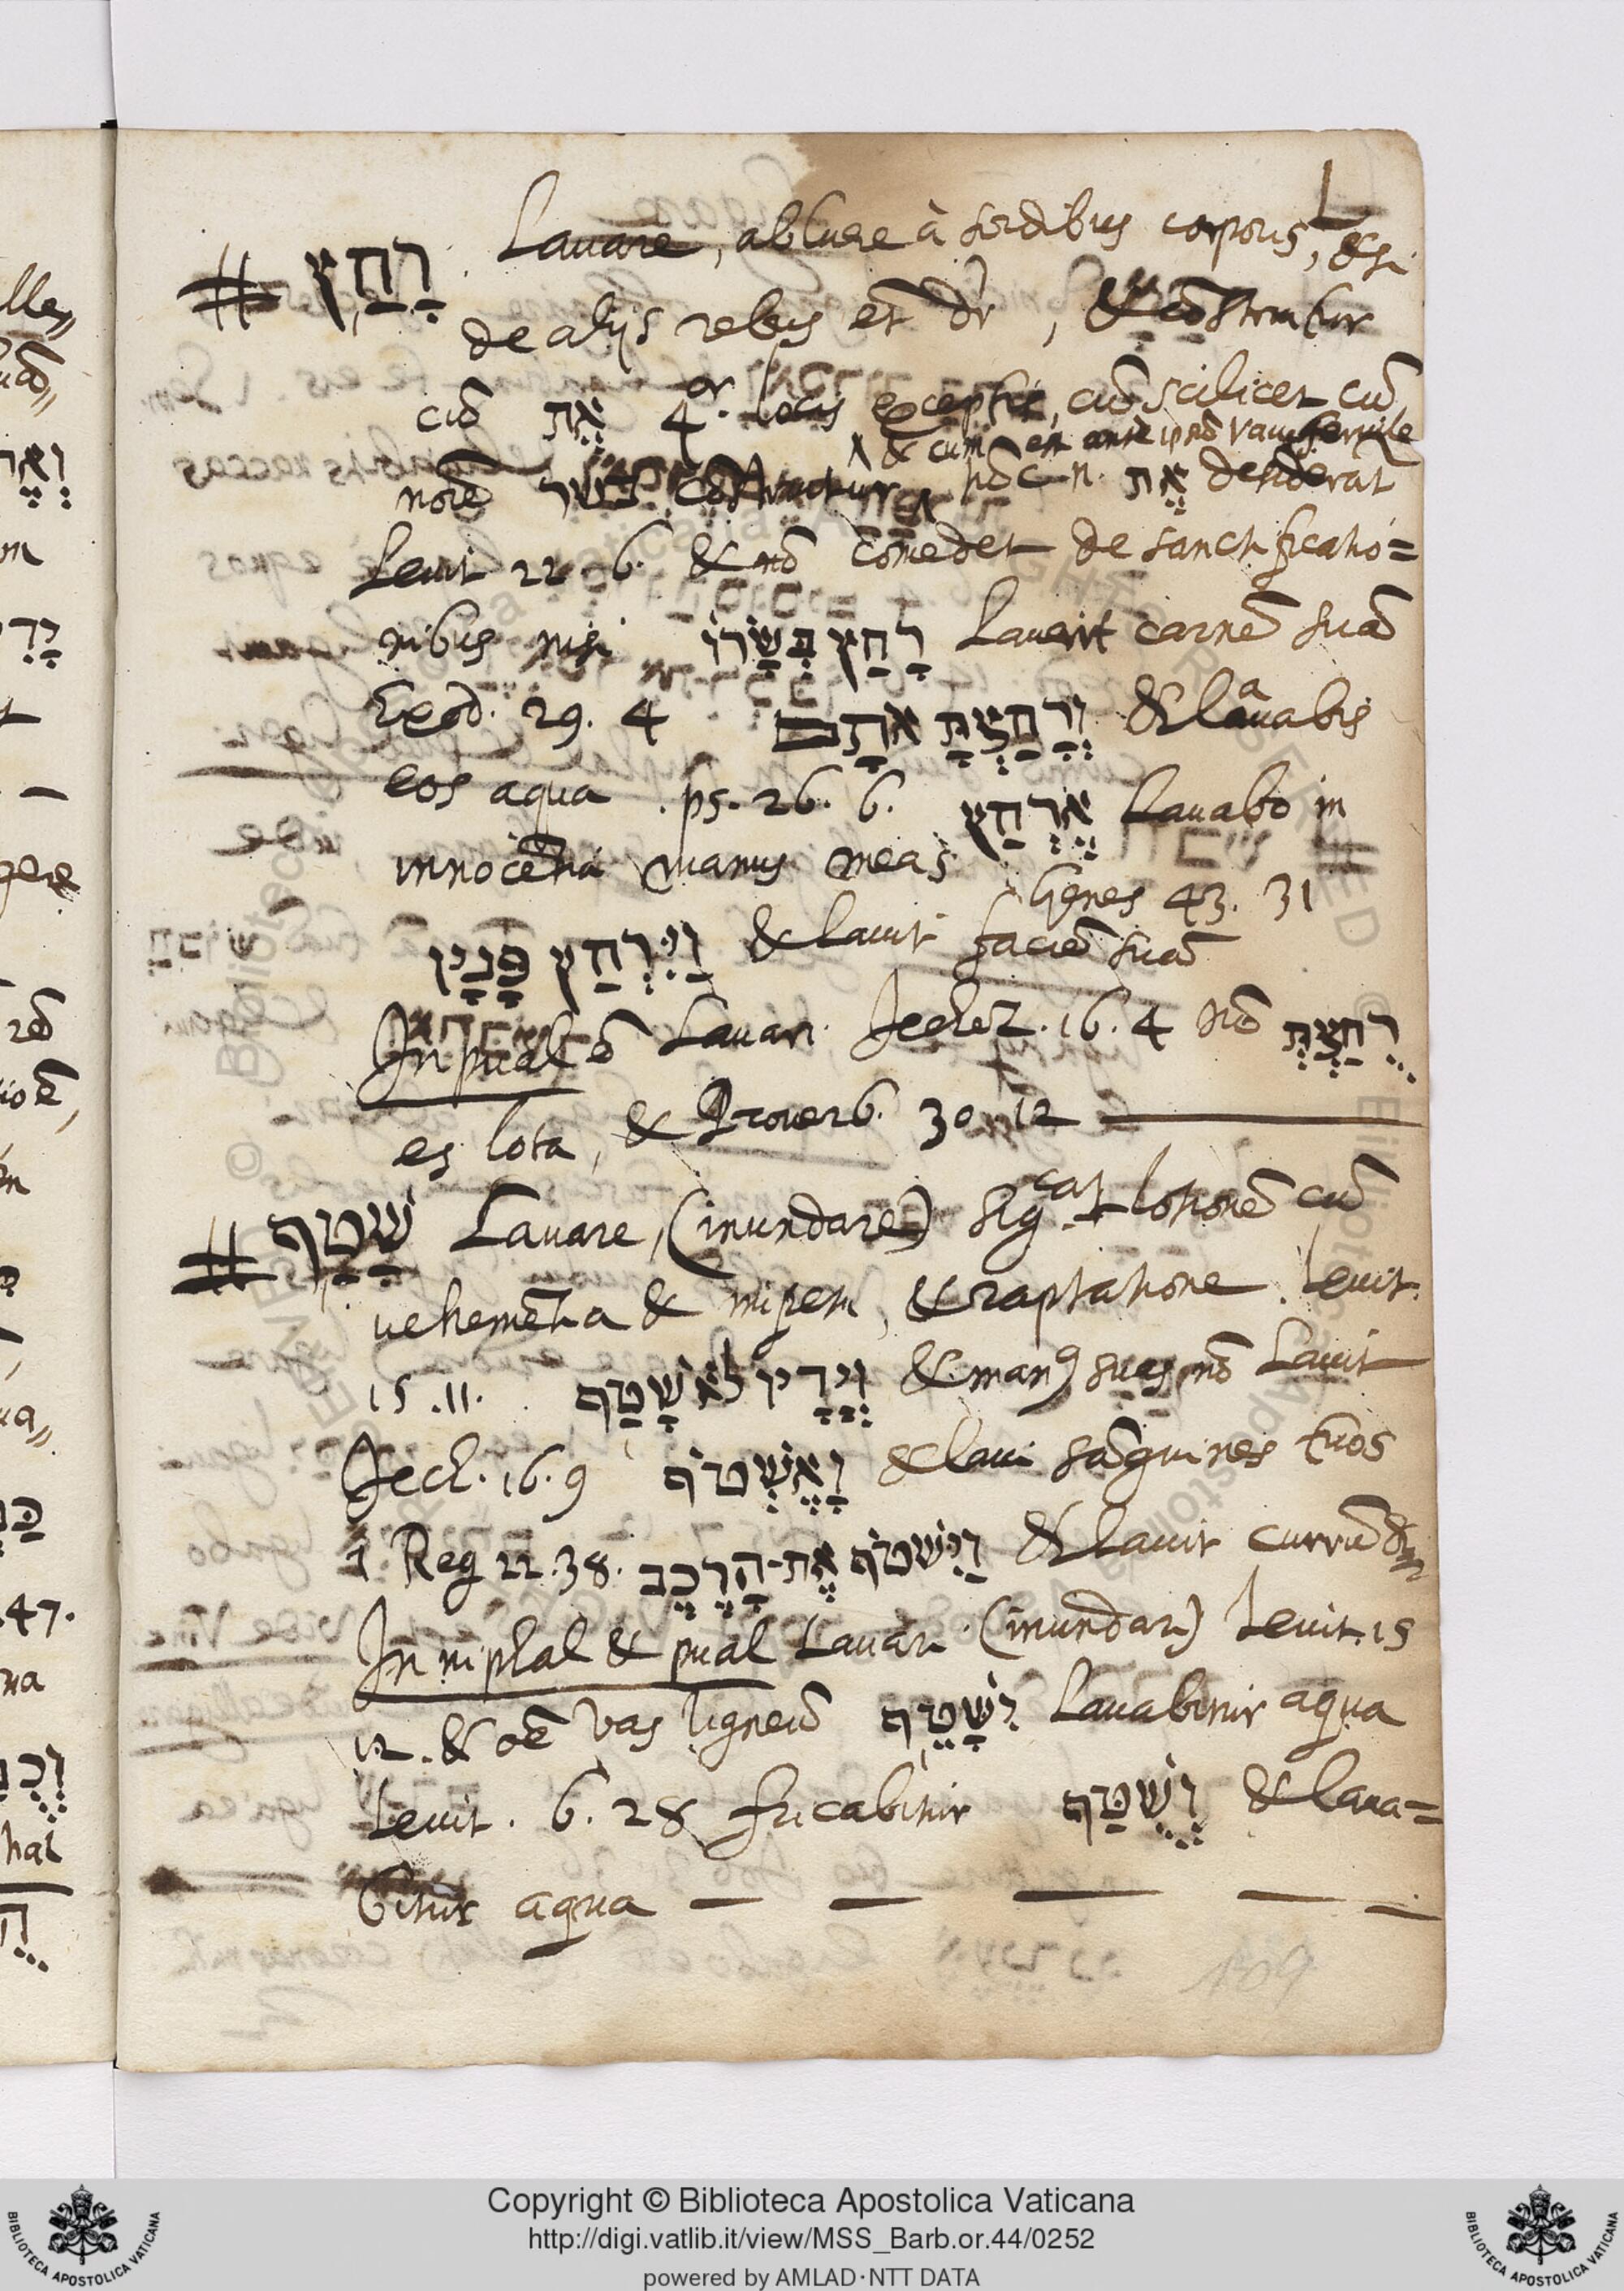 L
רָחַץ. Lauare, abluere à sordibus corporis, & si
de alijs rebus et dr, & cõstruitur
cũ אֶת 4.or locis exceptis, cũ scilicet cũ
& cum est ante ipsũ Vau seruile
noīe בשר cõstruitur nõ n. אֶת desiderat
Leuit 22. 6. & nõ comedet de sanctificatio=
nibus nisi רָחַץ בְּשָׂרוֹ Lauerit carnẽ suã
Exod. 29. 4 וְרָחַצְתָּ אֹתָם & lauabis
eos aqua. ps. 26. 6. אֶרְחַץ Lauabo in
innocẽtia manus meas Genes 43. 31
וַיִּרְחַץ פָּנָיו & lauit faciẽ suã
In pual ẽ Lauari. Jechez. 16. 4 nõ רֻחַצְתְּ
es lota, & Prouerb. 30. 12
שָׁטַף Lauare, (inundare) sig.cat lotionẽ cũ
uehemẽtia & impetu, & raptatione. Leuit.
15. 11. וְיָדָיו לֹא שָׁטַף & man9 suas nõ Lauit
Jech. 16. 9 וָאֶשְׁטֹף & laui sãguines tuos
1 Reg 22. 38. וַיִּשְׁטֹף אֶת-הָרֶכֶב & lauit currũ
In niphal & pual Lauari (inundari) Leuit. 15
12. & oẽ vas ligneũ יִשָּׁטֵף Lauabitur aqua
Leuit. 6. 28 fricabitur וְשֻׁטַּף & laua=
bitur aqua
109
Copyright © Biblioteca Apostolica Vaticana
http://digi.vatlib.it/view/MSS_Barb.or.44/0252
powered by AMLAD·NTT DATA